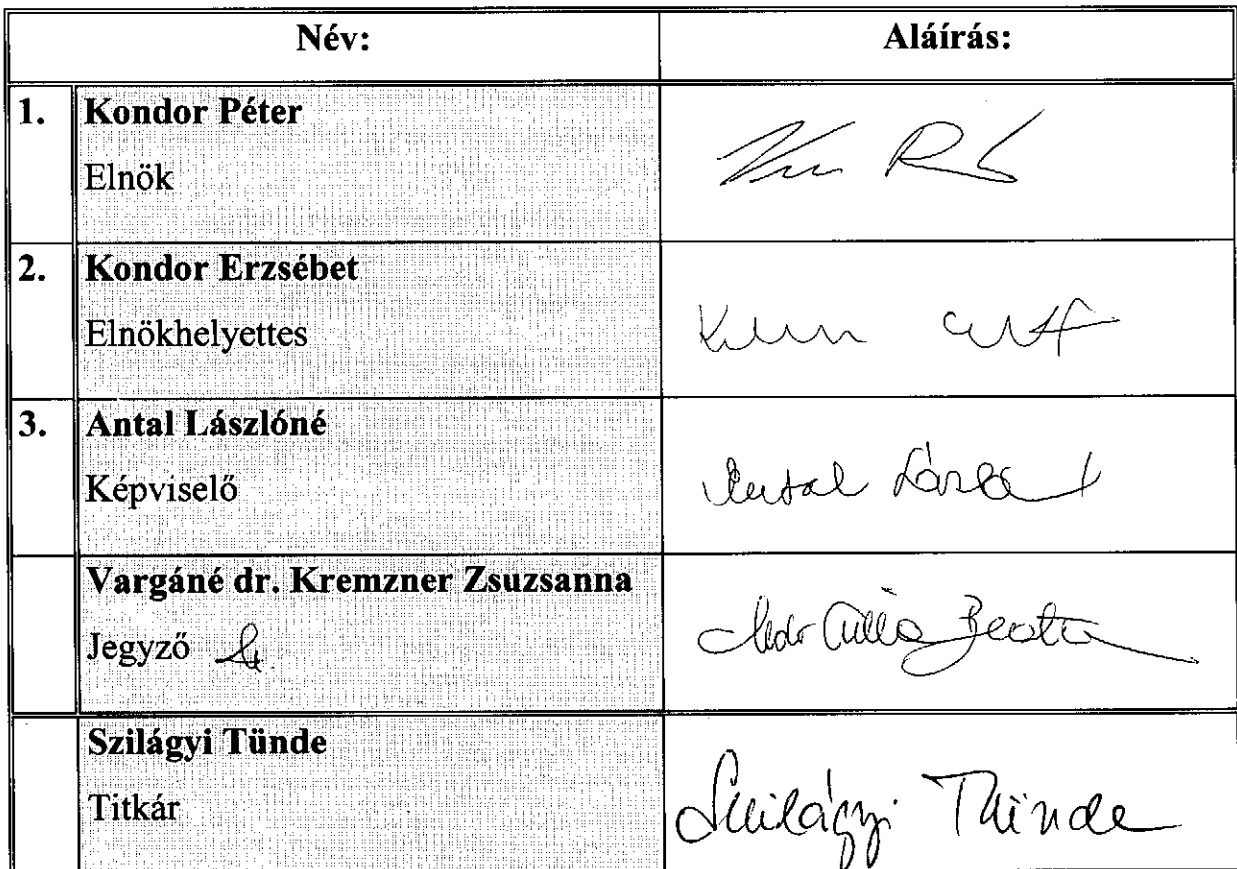 Név: Aláírás:
1. Kondor Péter
Elnök
2. Kondor Erzsébet
Elnökhelyettes
3. Antal Lászlóné
Képviselő
Antal
Vargáné dr. Kremzner Zsuzsanna
Jegyző
Szilágyi Tünde
Titkár
Szilágyi Tünde